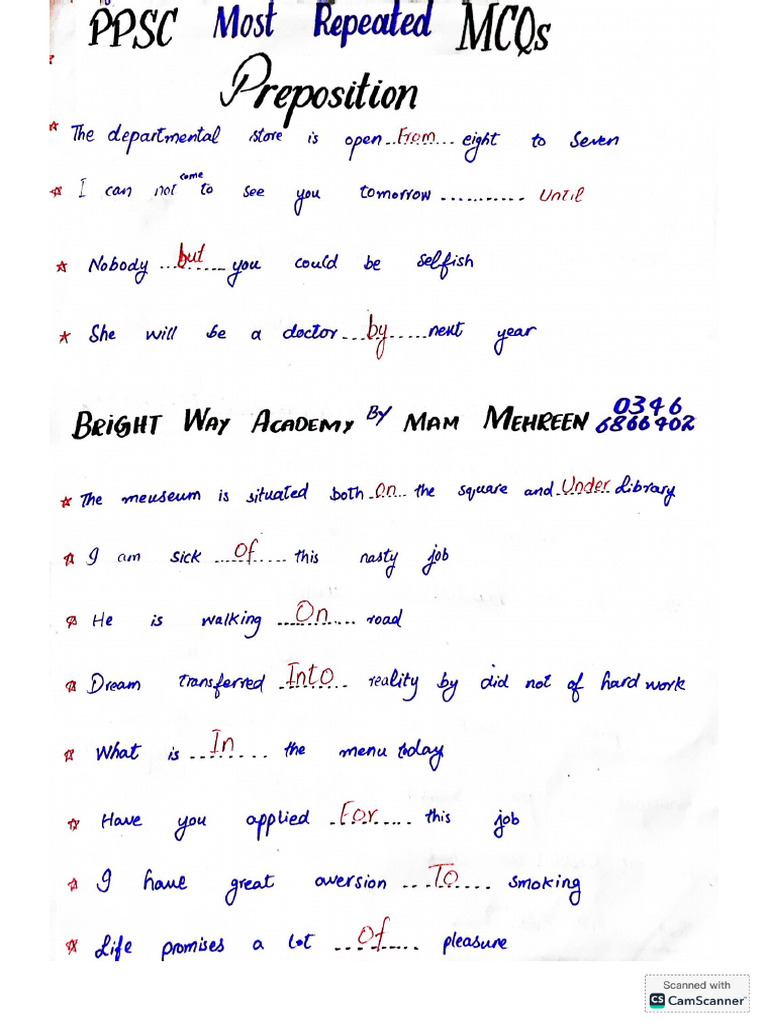 PPSC Most Repeated MCQs
Preposition
The departmental store is open From eight to seven
I can not come to see you tomorrow ........... Until
Nobody but you could be selfish
She will be a doctor by next year
BRIGHT WAY ACADEMY BY MAM MEHREEN 0346 6866402
The meuseum is situated both On the square and Under Library
I am sick Of this nasty job
He is walking On road
Dream transferred Into reality by did not of hard work
What is In the menu today
Have you applied For this job
I have great aversion To smoking
Life promises a lot Of pleasure
Scanned with
CS CamScanner